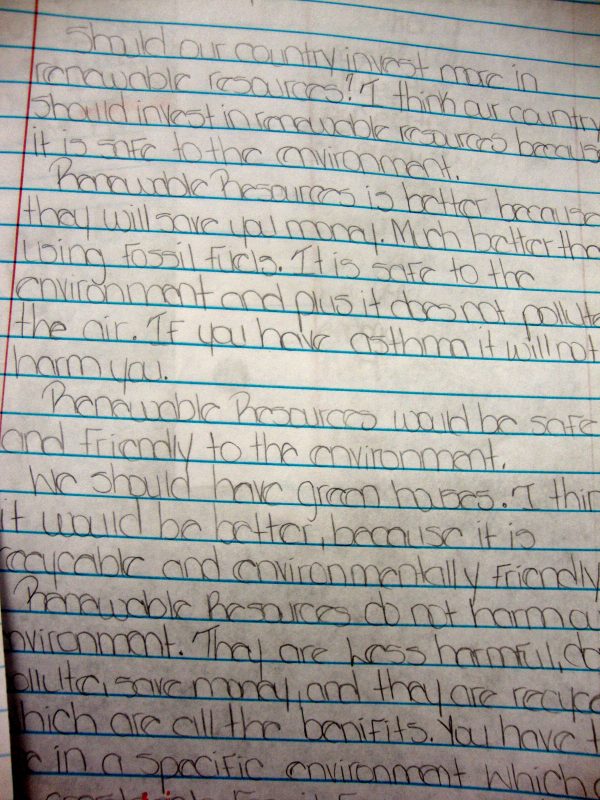 Should our country invest more in
renewable resources? I think our country
should invest in renewable resources becaus
it is safe to the environment.
Renewable Resources is better because
they will save you money. Much better tha
using fossil fuels. It is safe to the
environment and plus it does not pollute
the air. If you have asthma it will not
harm you.
Renewable Resources would be safe
and friendly to the environment.
We should have green houses. I thin
it would be better, because it is
recycable and environmentally friendly
Renewable Resources do not harm ou
nvironment. They are less harmful, do
ollute, save money, and they are recyc
hich are all the benifits. You have t
e in a specific environment which